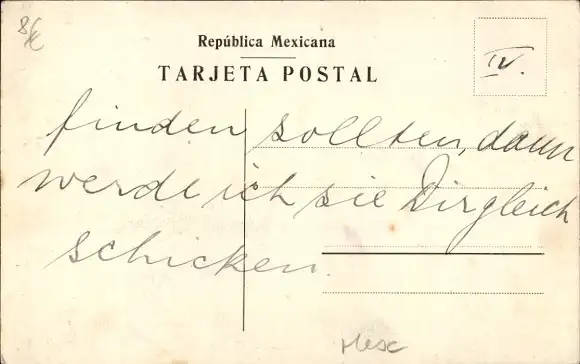 República Mexicana
TARJETA POSTAL
IV.
finden sollten, dann
werde ich sie Dir gleich
schicken.